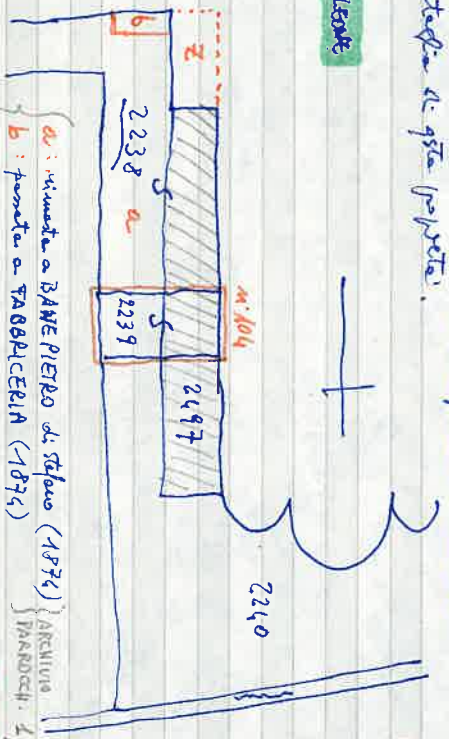 di qsta
b
Z
2238
a
S
n. 104
2239
S
2497
2240
a: rimasta a BANE PIETRO di Stefano (1874)
b: passata a FABBRICERIA (1874)
ARCHIVIO
PARROCCH. 1